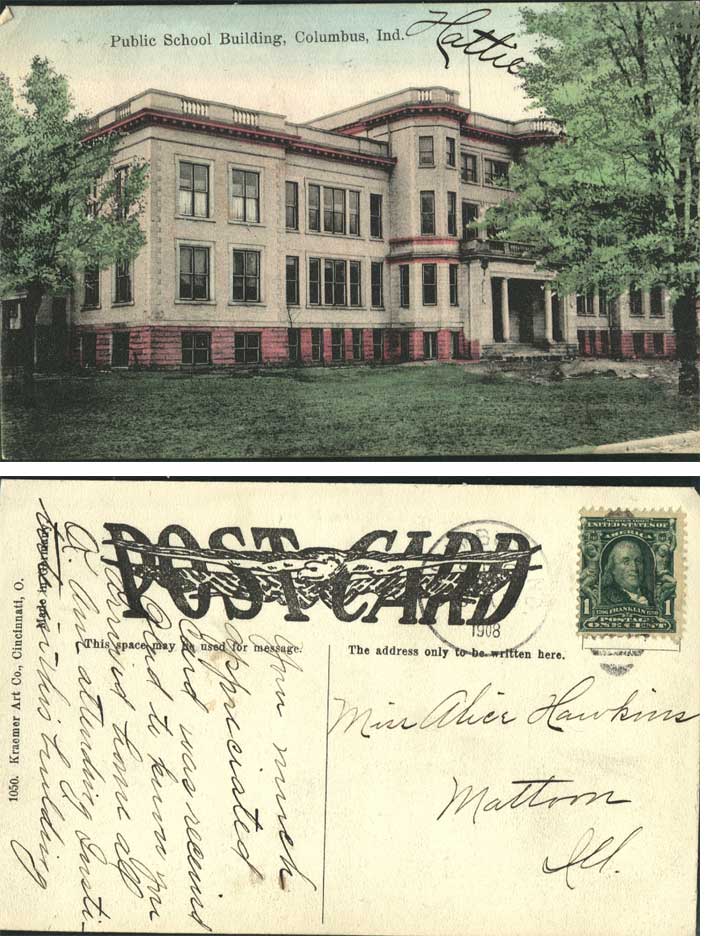 Public School Building, Columbus, Ind.
Hattie
POST CARD
This space may be used for message.
The address only to be written here.
1908
SERIES 1902
UNITED STATES OF
AMERICA
1 FRANKLIN 1
POSTAGE
ONE CENT
1050. Kraemer Art Co., Cincinnati, O.
Made in Germany.
Your much
appreciated
card was received
Glad to know you
arrived home all
O.K. Am attending Insti-
tute in this building
Miss Alice Hawkins
Mattoon
Ill.